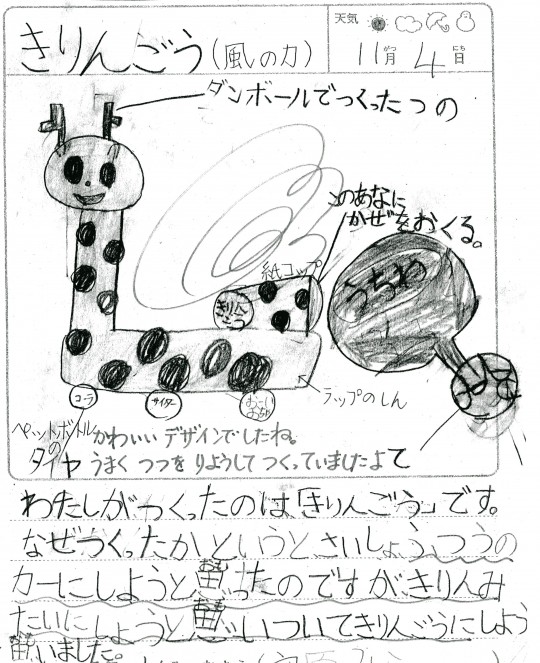 天気
きりんごう(風の力)
11月4日
ダンボールでつくったつの
このあなに
かぜをおくる。
紙コップ
うちわ
きりん
ごう
コーラ
サイダー
おーいお茶
ラップのしん
ペットボトル
の
タイヤ
かわいいデザインでしたね。
うまくつつをりようしてつくっていましたよ
て
わたしがつくったのは「きりんごう」です。
なぜつくったかというとさいしょふつうの
カーにしようと思ったのですがきりんみ
たいにしようと思いついてきりんごうにしよう
思いました。